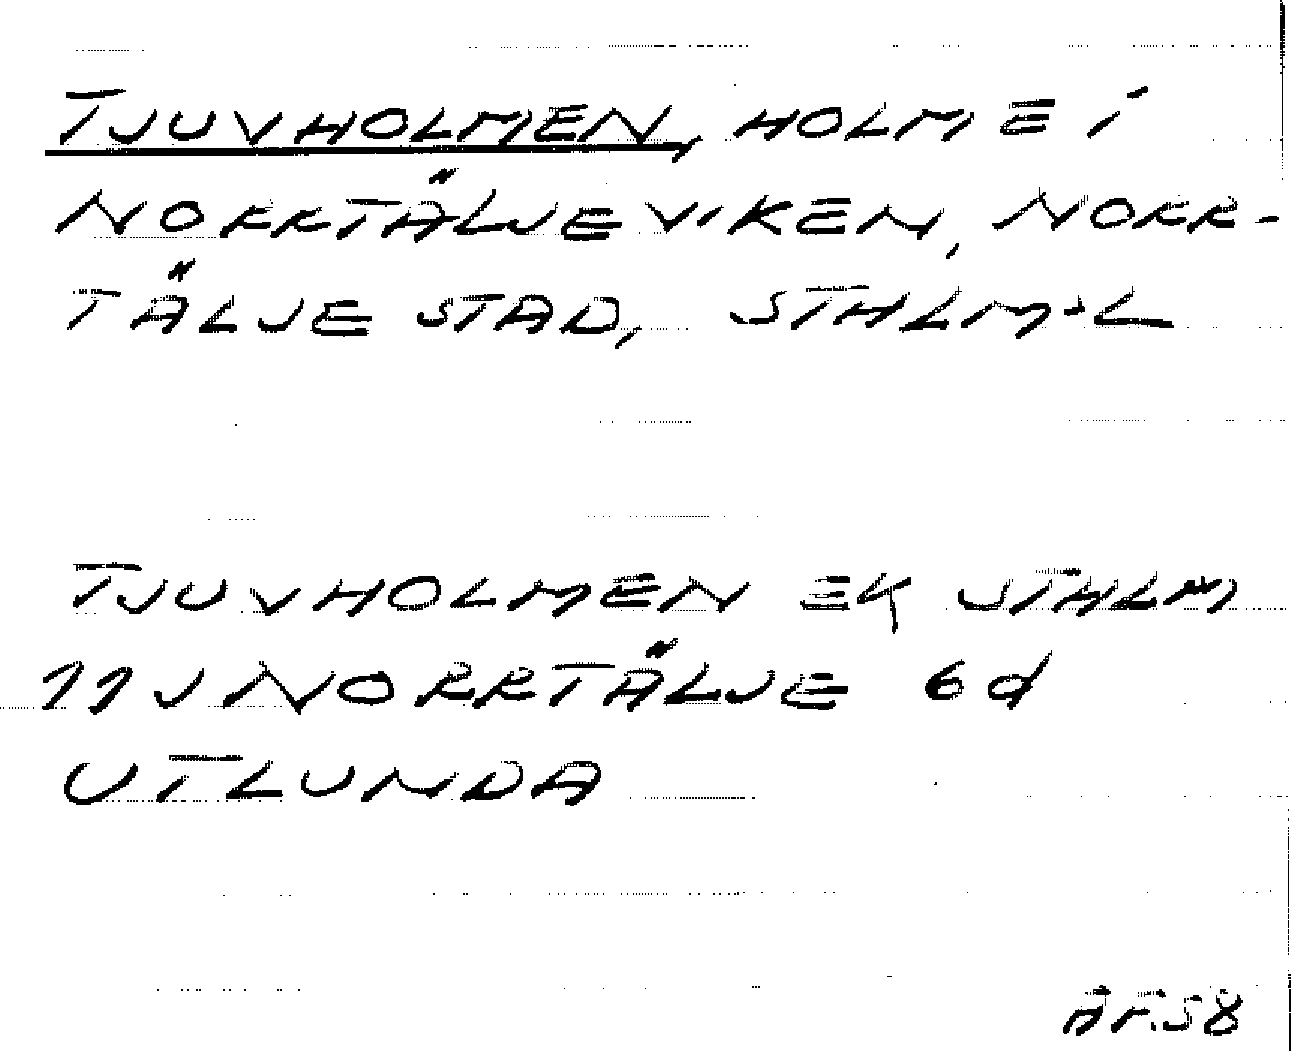 TJUVHOLMEN, HOLME I
NORRTÄLJEVIKEN, NORR-
TÄLJE STAD, STHLM-L
TJUVHOLMEN EK STHLM
11J NORRTÄLJE 6d
UTLUNDA